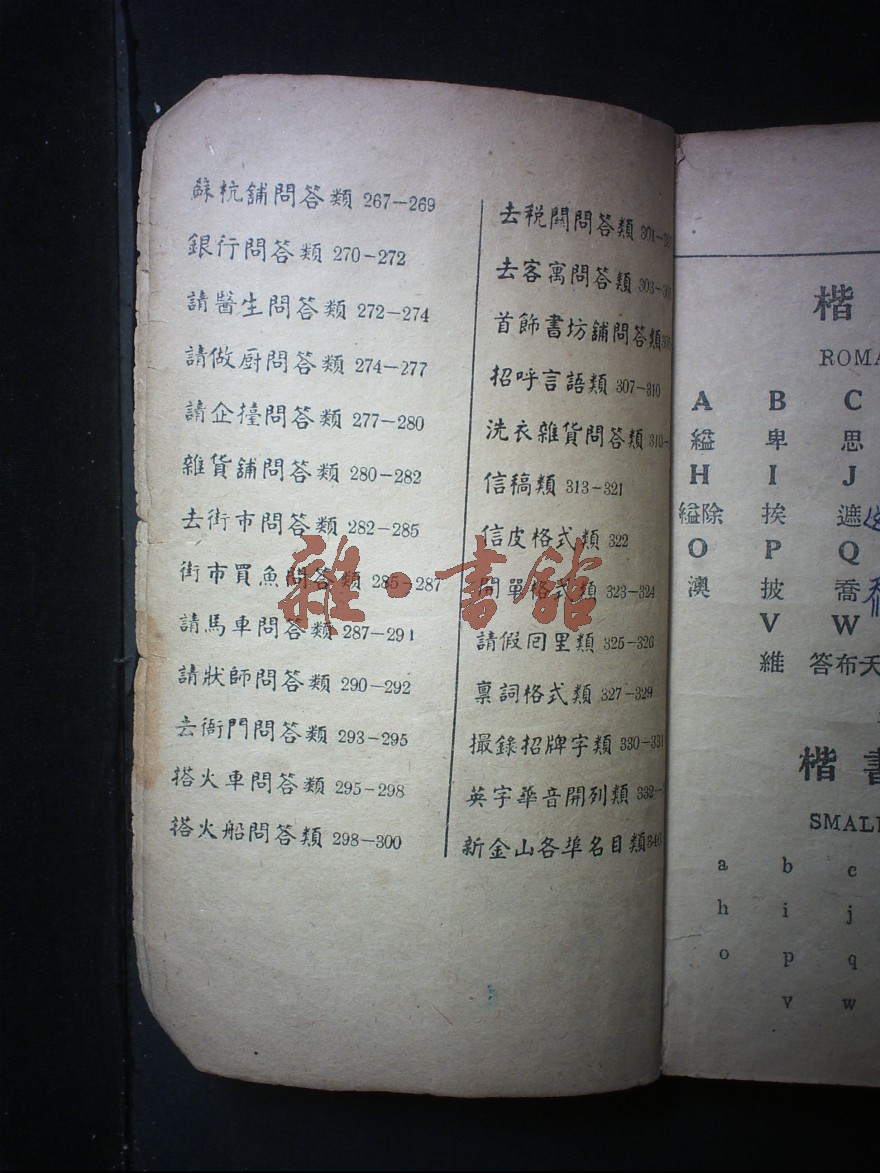 蘇杭舖問答類 267—269
銀行問答類 270—272
請醫生問答類 272—274
請做厨問答類 274—277
請企擡問答類 277—280
雜貨舖問答類 280—282
去街市問答類 282—285
街市買魚問答類 285—287
請馬車問答類 287—291
請狀師問答類 290—292
去衙門問答類 293—295
搭火車問答類 295—298
搭火船問答類 298—300
去税關問答類 301—
去客寓問答類 303—
首飾書坊舖問答類
招呼言語類 307—310
洗衣雜貨問答類 310—
信稿類 313—321
信皮格式類 322
開單格式類 323—324
請假囘里類 325—326
禀詞格式類 327—329
撮錄招牌字類 330—331
英字華音開列類 332—
新金山各埠名目類 346
雜·書館
楷
ROMA
A B C
縊 卑 思
H I J
縊除 挨 遮
O P Q
澳 披 喬
V W
維 答布天
楷 書
SMALL
a b c
h i j
o p q
v w